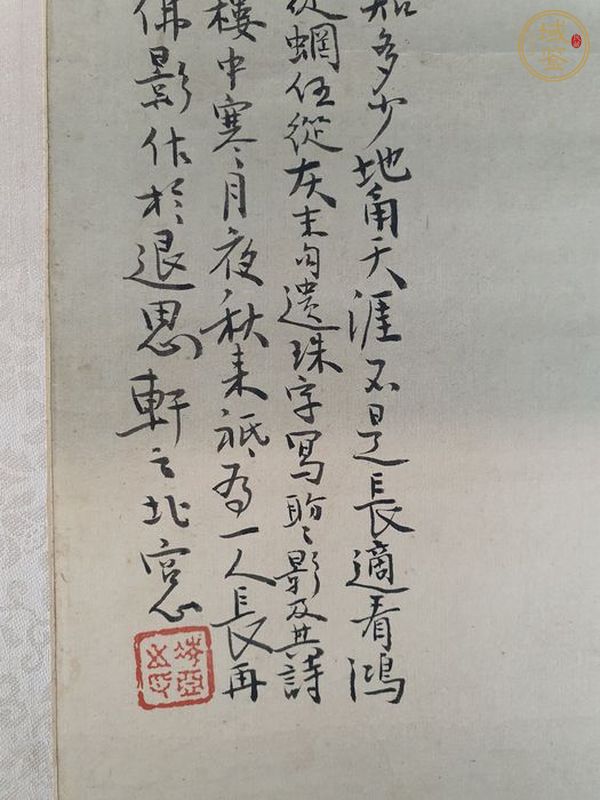 知多少地角天涯不是長適看鴻
從蝄任從灰末句遺珠字寫盼〻影及其詩
樓中寒月夜秋來秖為一人長再
佛影作於退思軒之北窓
域鉴